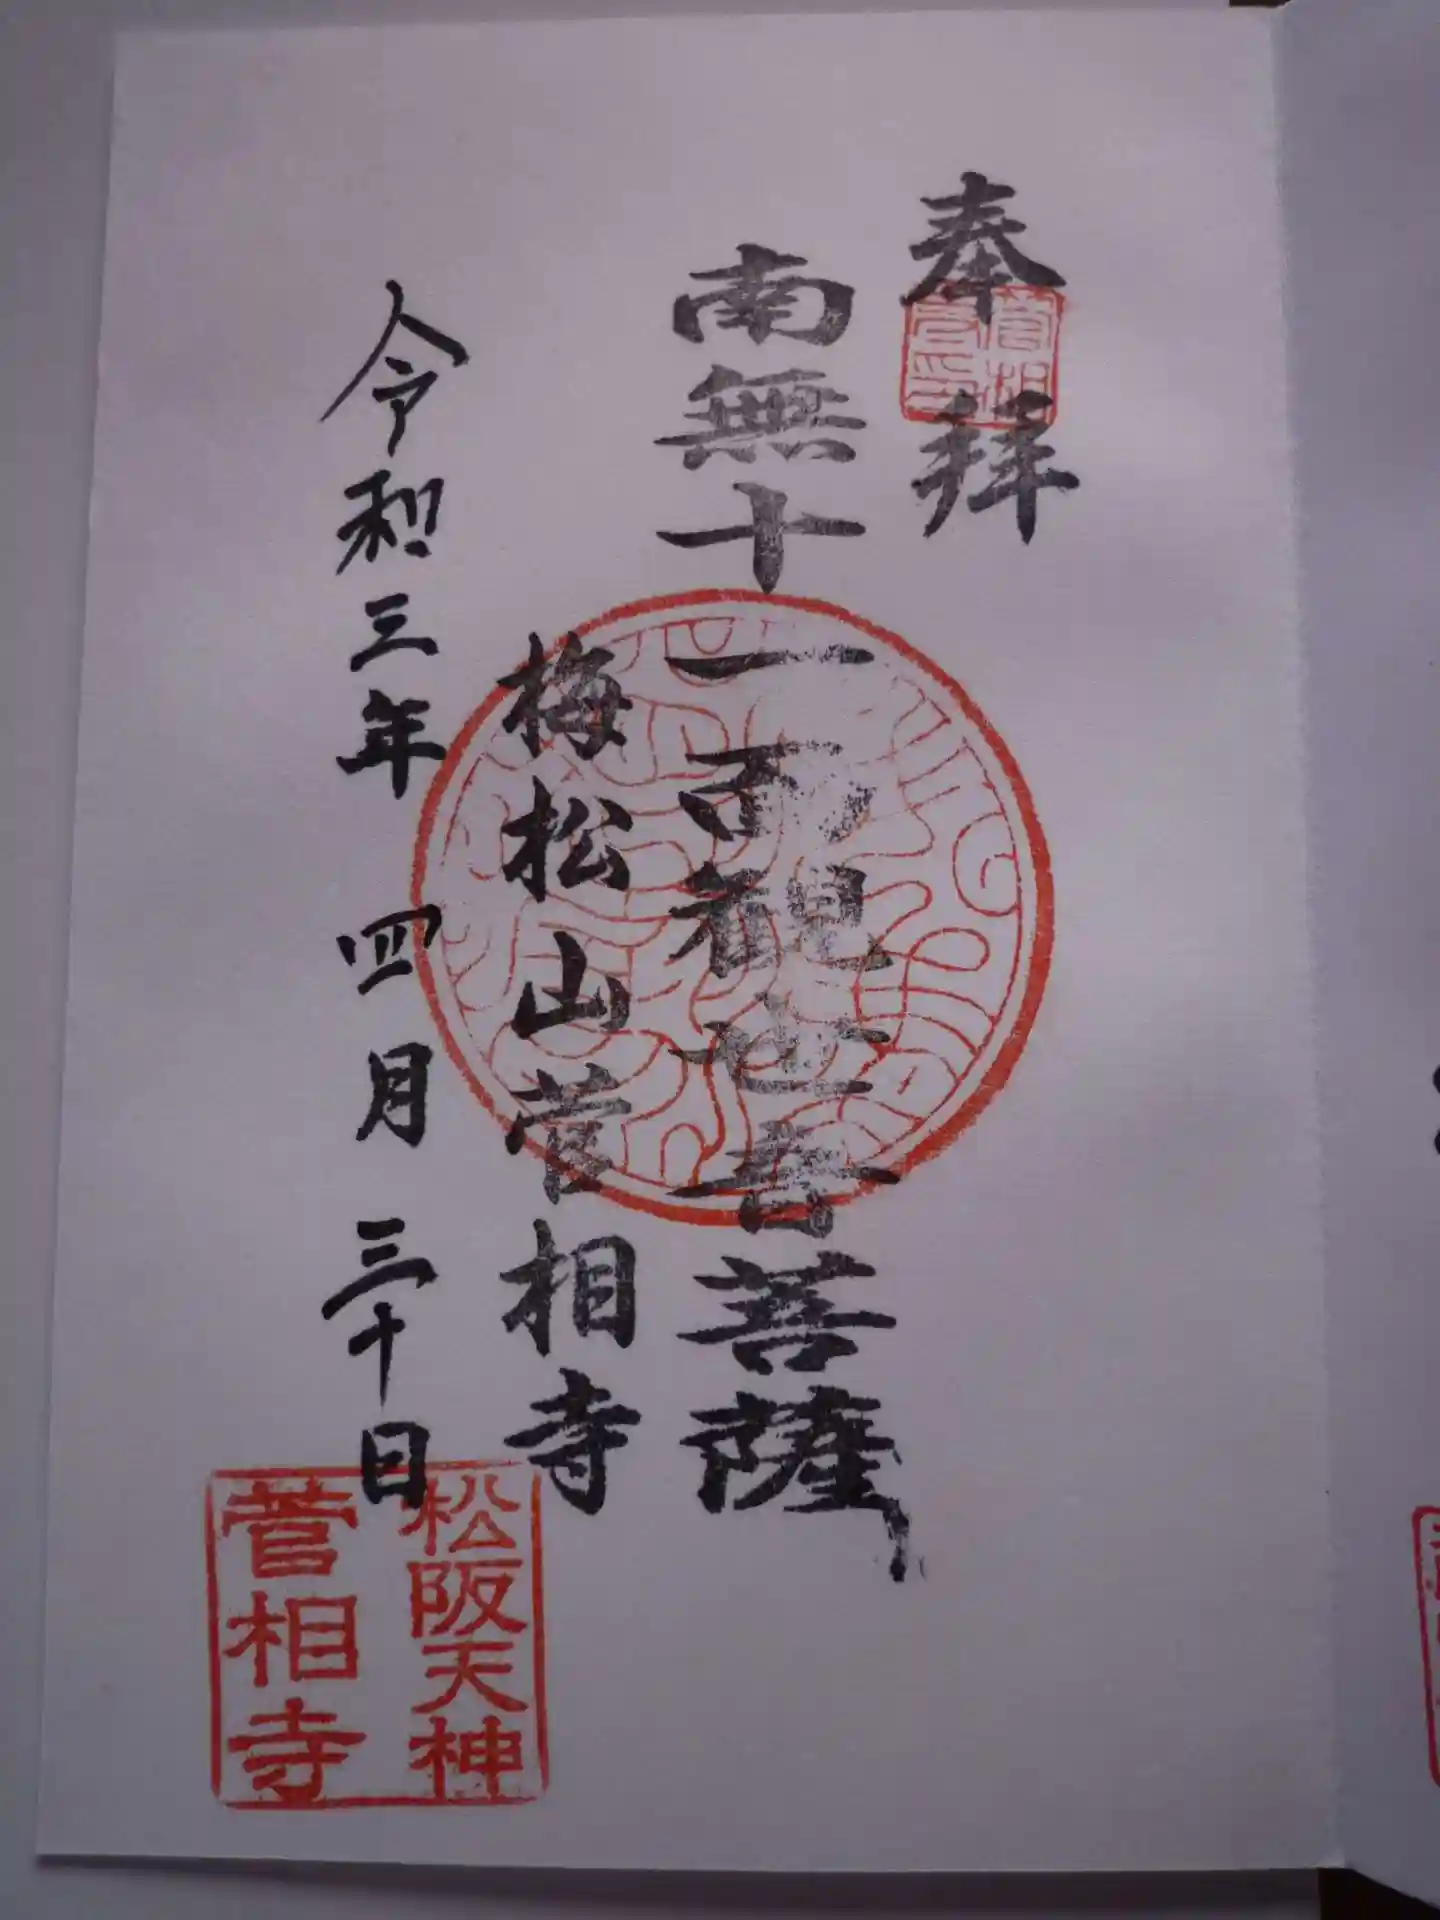 奉拝
南無十一面観世音菩薩
梅松山菅相寺
令和三年四月三十日
松阪天神
菅相寺